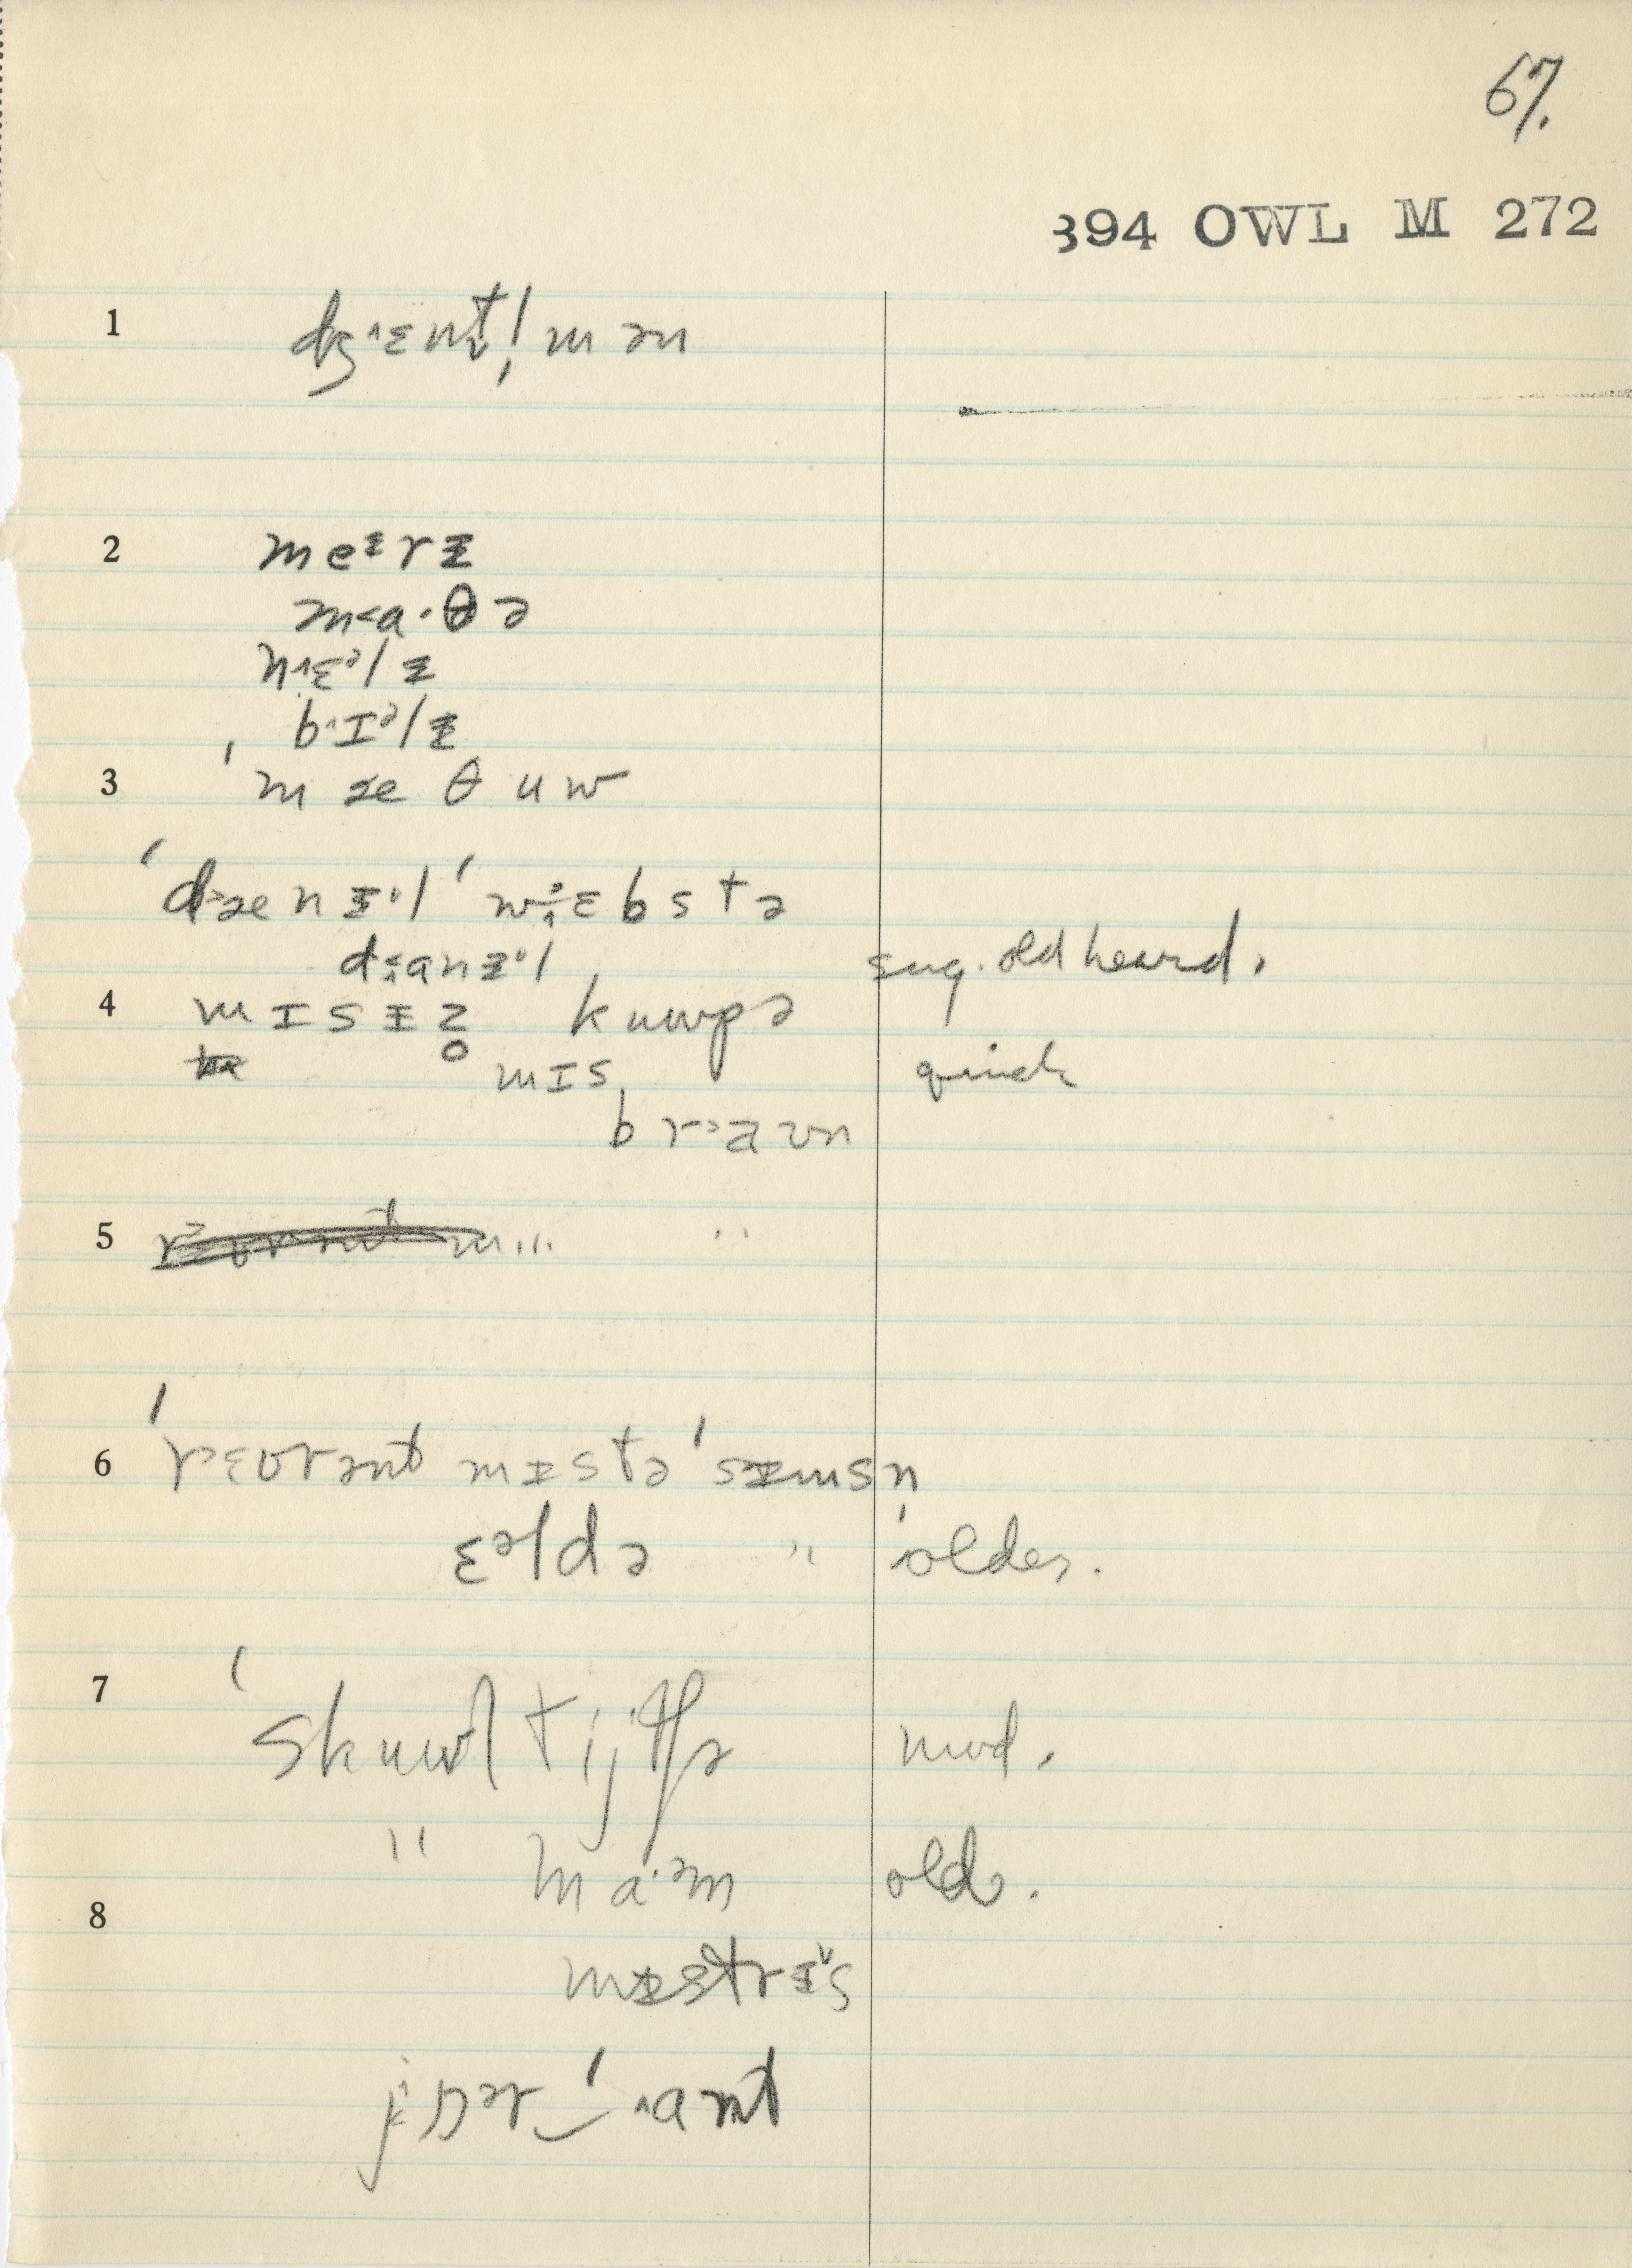 67.
394 OWL M 272
1 dʒ˄ɛnt̬l̩mən
2 meᵻrᵻ
m˂a·θə
n˄ɛᵊlᵻ
b˄ɪᵊlᵻ
3 ˈmæθuw
ˈd˃ænᵻ·l ˈwɛbstə
d˂anᵻ·l sug. old heard.
4 mɪsᵻz̥ kuwpə
mɪs quick
br˃aʊn
5
6 ˈr˃ɛvrənt mᵻstə ˈsᵻmsn̩
ɛᵊldə " older.
7 ˈskuwl tijtʃə mod.
" ma·ᵊm old.
8
mᵻstrᵻ˅s
jɒᵊr‿ˈ˄ant